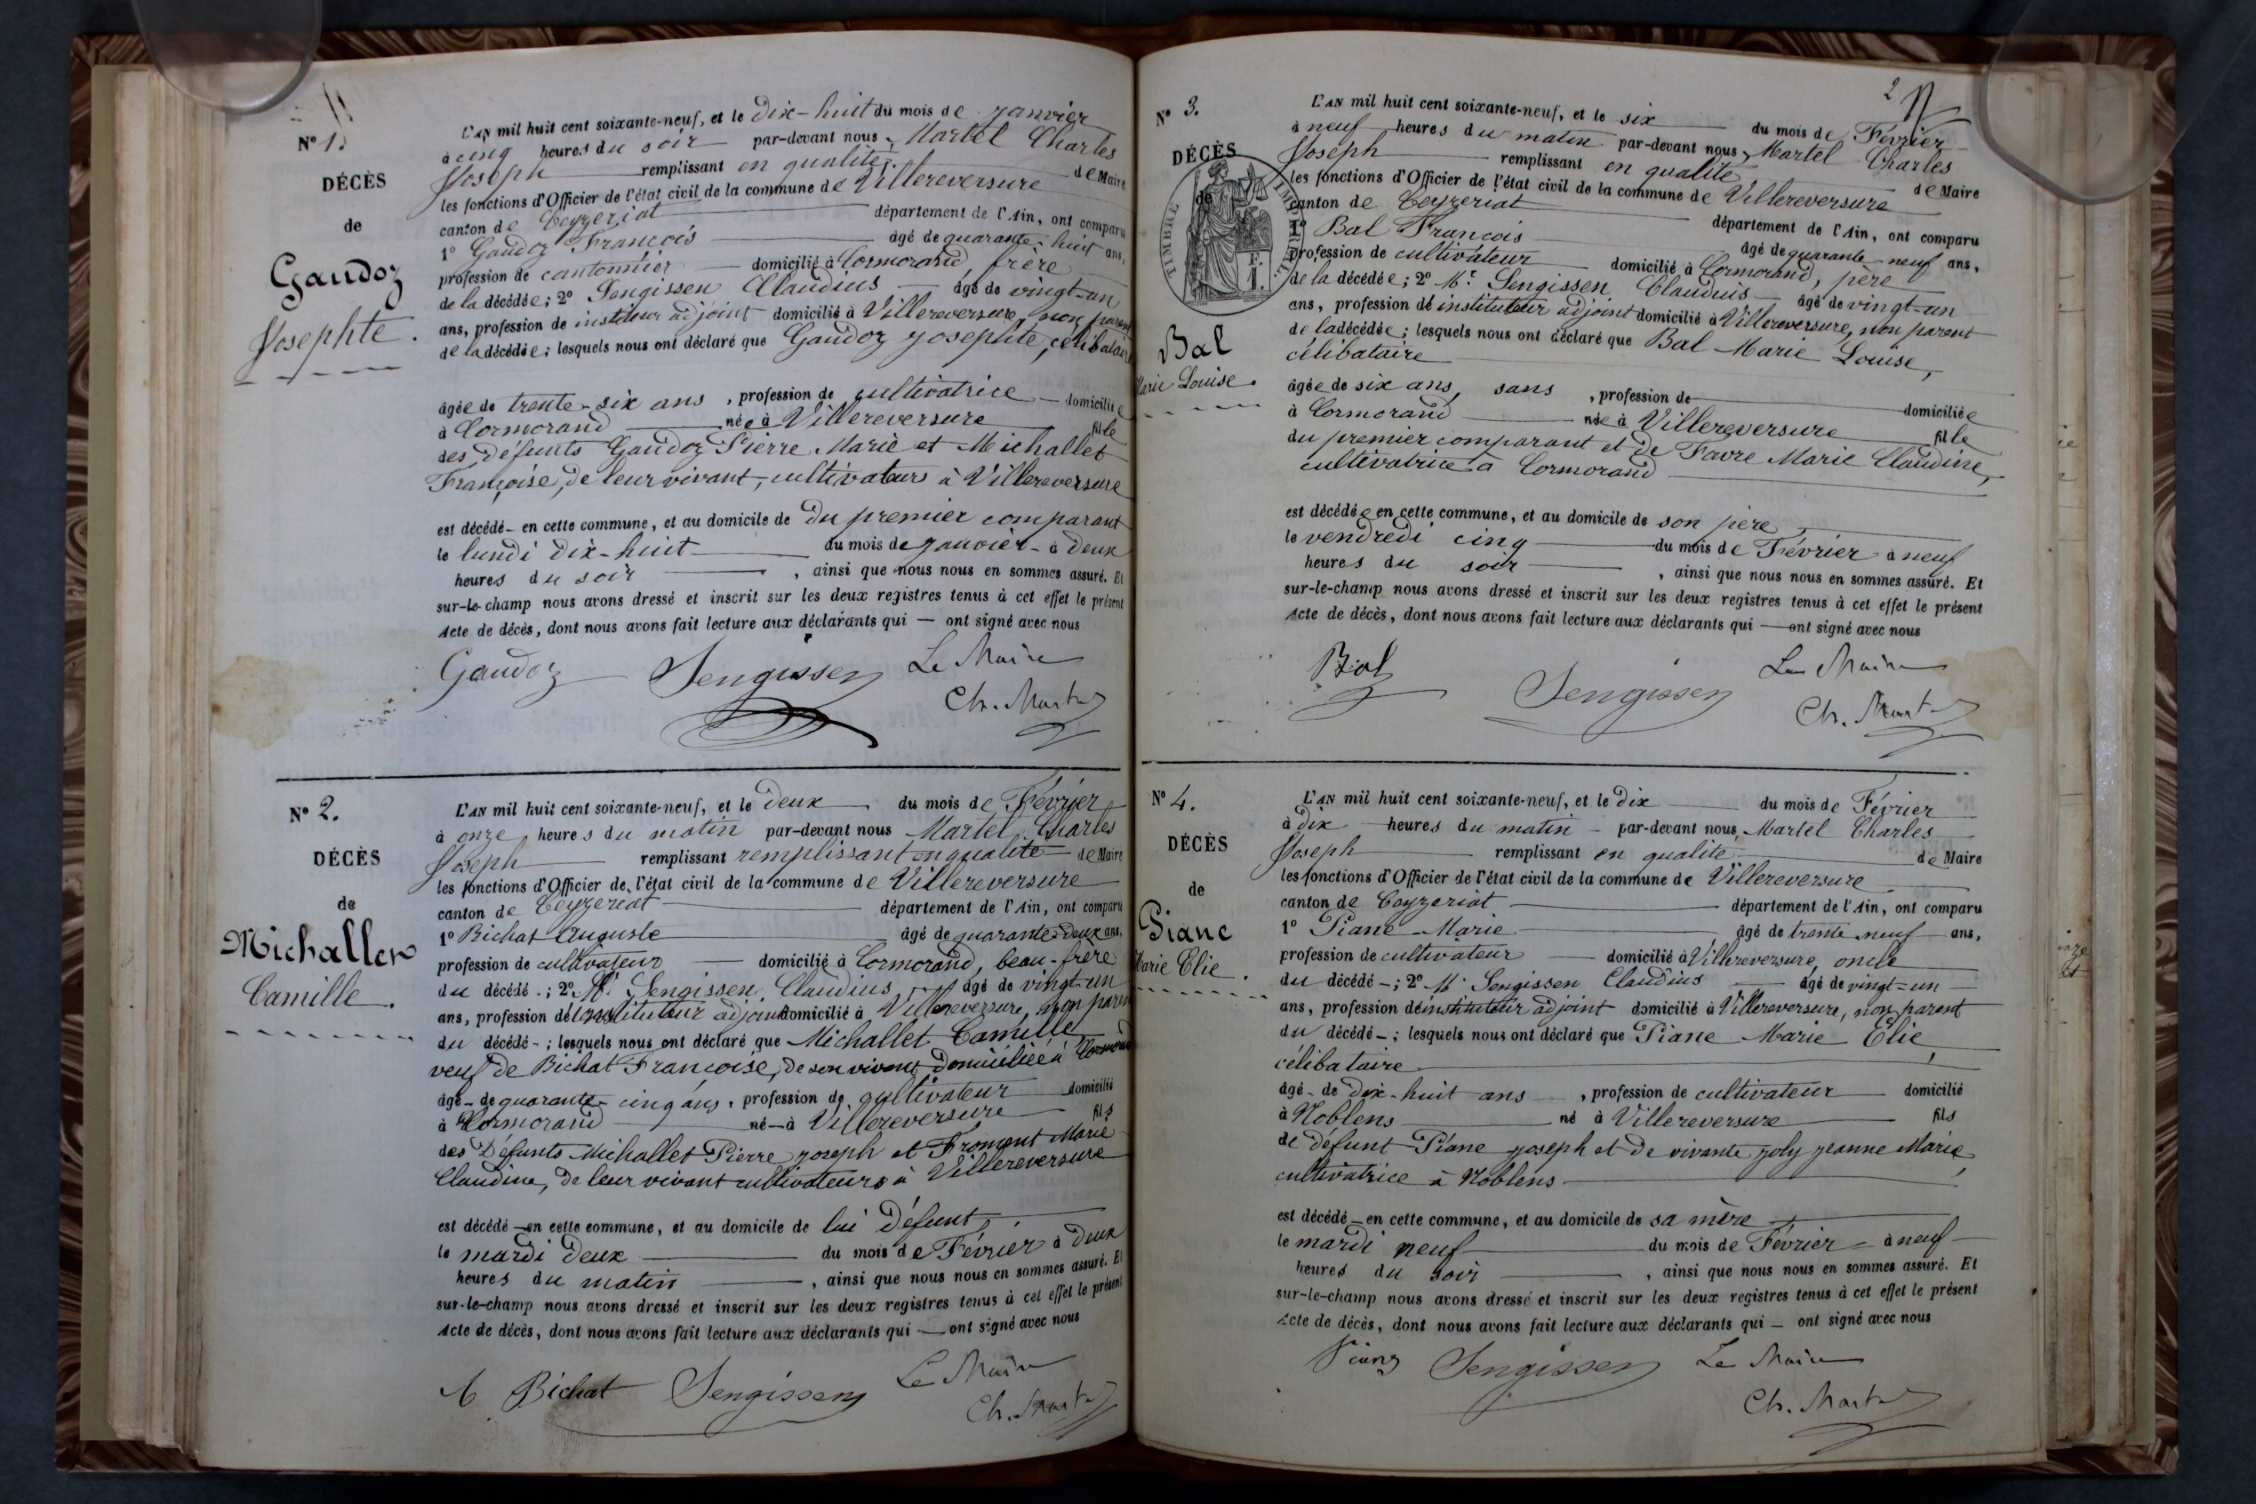 N° 1.
DÉCÈS
de
Gaudoz
Josephte.
L'AN mil huit cent soixante-neuf, et le dix-huit du mois de janvier
à cinq heures du soir par-devant nous, Martel Charles
Joseph remplissant en qualité de Maire
les fonctions d'Officier de l'état civil de la commune de Villereversure
canton de Ceyzeriat département de l'Ain, ont comparu
1° Gaudoz François âgé de quarante-huit ans,
profession de cantonnier domicilié à Cormorand, frère
de la décédée; 2° Sengissen Claudius âgé de vingt-un
ans, profession de instituteur adjoint domicilié à Villereversure, non parent
de la décédée; lesquels nous ont déclaré que Gaudoz Josephte, célibataire
âgée de trente-six ans, profession de cultivatrice domiciliée
à Cormorand née à Villereversure fille
des défunts Gaudoz Pierre Marie et Michallet
Françoise, de leur vivant, cultivateurs à Villereversure
est décédé en cette commune, et au domicile de du premier comparant
le lundi dix-huit du mois de janvier à deux
heures du soir, ainsi que nous nous en sommes assuré. Et
sur-le-champ nous avons dressé et inscrit sur les deux registres tenus à cet effet le présent
Acte de décès, dont nous avons fait lecture aux déclarants qui ont signé avec nous
Gaudoz Sengissen Le Maire
Ch. Martel
N° 2.
DÉCÈS
de
Michallet
Camille.
L'AN mil huit cent soixante-neuf, et le deux du mois de Février
à onze heures du matin par-devant nous Martel Charles
Joseph remplissant remplissant en qualité de Maire
les fonctions d'Officier de l'état civil de la commune de Villereversure
canton de Ceyzeriat département de l'Ain, ont comparu
1° Bichat Auguste âgé de quarante-deux ans,
profession de cultivateur domicilié à Cormorand, beau-frère
du décédé; 2° Mr Sengissen Claudius, âgé de vingt-un
ans, profession de instituteur adjoint domicilié à Villereversure, non parent
du décédé; lesquels nous ont déclaré que Michallet Camille
veuf de Bichat Françoise, de son vivant domiciliée à Cormorand
âgé de quarante-cinq ans, profession de cultivateur domicilié
à Cormorand né à Villereversure fils
des Défunts Michallet Pierre Joseph et Froment Marie
Claudine, de leur vivant cultivateurs à Villereversure
est décédé en cette commune, et au domicile de lui Défunt,
le mardi deux du mois de Février à deux
heures du matin, ainsi que nous nous en sommes assuré. Et
sur-le-champ nous avons dressé et inscrit sur les deux registres tenus à cet effet le présent
Acte de décès, dont nous avons fait lecture aux déclarants qui ont signé avec nous
A Bichat Sengissen Le Maire
Ch. Martel
2
N° 3.
DÉCÈS
de
TIMBRE IMPÉRIAL
F.
1.
Bal
Marie Louise.
L'AN mil huit cent soixante-neuf, et le six du mois de Février
à neuf heures du matin par-devant nous, Martel Charles
Joseph remplissant en qualité de Maire
les fonctions d'Officier de l'état civil de la commune de Villereversure
canton de Ceyzeriat département de l'Ain, ont comparu
1° Bal François âgé de quarante-neuf ans,
profession de cultivateur domicilié à Cormorand, père
de la décédée; 2° Mr Sengissen Claudius âgé de vingt-un
ans, profession de instituteur adjoint domicilié à Villereversure, non parent
de la décédée; lesquels nous ont déclaré que Bal Marie Louise,
célibataire
âgée de six ans, sans, profession de domiciliée
à Cormorand née à Villereversure fille
du premier comparant et de Favre Marie Claudine,
cultivatrice à Cormorand
est décédée en cette commune, et au domicile de son père,
le vendredi cinq du mois de Février à neuf
heures du soir, ainsi que nous nous en sommes assuré. Et
sur-le-champ nous avons dressé et inscrit sur les deux registres tenus à cet effet le présent
Acte de décès, dont nous avons fait lecture aux déclarants qui ont signé avec nous
Bal Sengissen Le Maire
Ch. Martel
N° 4.
DÉCÈS
de
Piane
Marie Elie.
L'AN mil huit cent soixante-neuf, et le dix du mois de Février
à dix heures du matin par-devant nous, Martel Charles
Joseph remplissant en qualité de Maire
les fonctions d'Officier de l'état civil de la commune de Villereversure
canton de Ceyzeriat département de l'Ain, ont comparu
1° Piane Marie âgé de trente neuf ans,
profession de cultivateur domicilié à Villereversure, oncle
du décédé; 2° Mr Sengissen Claudius âgé de vingt-un
ans, profession de instituteur adjoint domicilié à Villereversure, non parent
du décédé; lesquels nous ont déclaré que Piane Marie Elie,
célibataire
âgé de dix-huit ans, profession de cultivateur domicilié
à Noblens né à Villereversure fils
de défunt Piane Joseph et de vivante Joly Jeanne Marie,
cultivatrice à Noblens
est décédé en cette commune, et au domicile de sa mère
le mardi neuf du mois de Février à neuf
heures du soir, ainsi que nous nous en sommes assuré. Et
sur-le-champ nous avons dressé et inscrit sur les deux registres tenus à cet effet le présent
Acte de décès, dont nous avons fait lecture aux déclarants qui ont signé avec nous
Piane Sengissen Le Maire
Ch. Martel